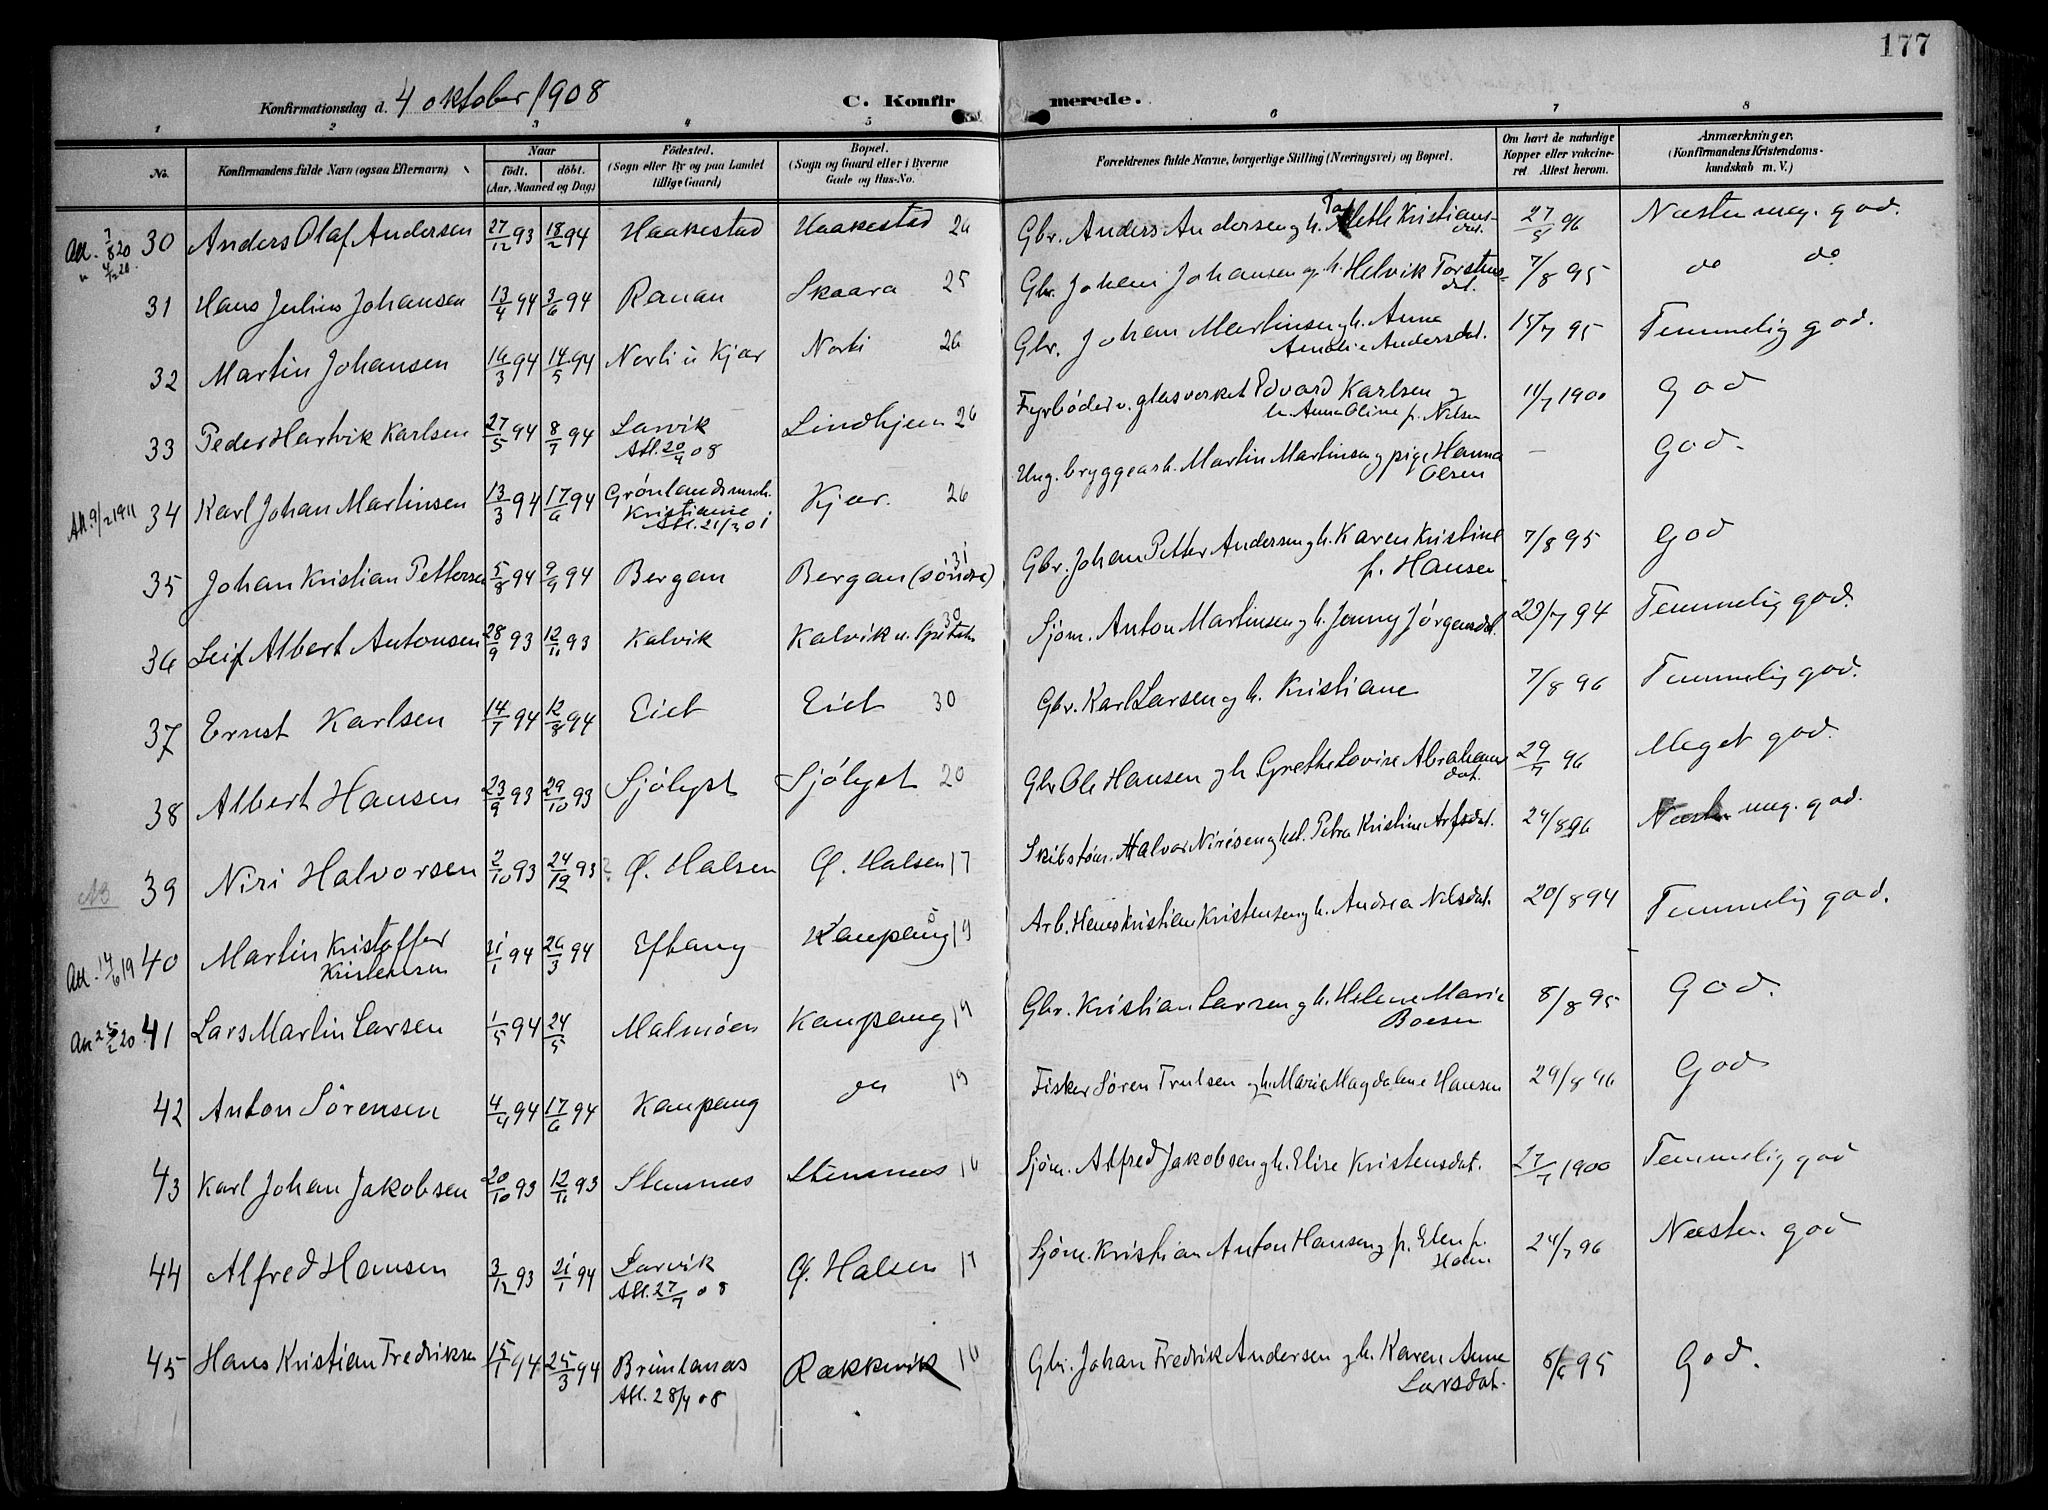 177
Konfirmationsdag d. 4 oktober 1908 C. Konfirmerede.
1 2 3 4 5 6 7 8
No. Konfirmandens fulde Navn (ogsaa Efternavn) Naar født. døbt. (Aar, Maaned og Dag) Fødested. (Sogn eller By og paa Landet tillige Gaard) Bopæl. (Sogn og Gaard eller i Byerne Gade og Hus-No. Forældrenes fulde Navne, borgerlige Stilling (Næringsvei) og Bopæl. Om havt de naturlige Kopper eller vakcineret Attest herom. Anmærkninger. (Konfirmandens Kristendomskundskab m. V.)
30 Anders Olaf Andersen 27/12 93 18/2 94 Haakestad Haakestad 26 Gbr. Anders Andersen og h. Kristiansdat. 27/8 96 Næsten meg. god.
31 Hans Julius Johansen 13/4 94 3/6 94 Ranan Skaara 25 Gbr. Johan Johansen og h. Helvik Torstensdat. 7/8 95 do do
32 Martin Johansen 16/3 94 14/5 94 Norli i Kjær Norli 26 Gbr. Johan Martinsen og h. Anna Amalie Andersdat. 15/7 95 Temmelig god.
33 Peder Hartvik Karlsen 27/5 94 8/7 94 Larvik Att. 20/4 08 Lindhjem 26 Fyrbøder v. glasverket Edvard Karlsen og h. Anna Oline f. Nilsen 11/7 1900 God
Att. 9/2 1911 34 Karl Johan Martinsen 13/3 94 17/6 94 Grønlands Kristiania Att. 21/3 01 Kjær. 26 Ung. bryggearb. Martin Martinsen og pige Hanna Olsen — God.
35 Johan Kristian Pettersen 5/8 94 9/9 94 Bergan Bergan (søndre) 31 Gbr. Johan Petter Andersen og h. Karen Kristine f. Hansen 7/8 95 God
36 Leif Albert Antonsen 28/9 93 12/11 93 Kalvik Kalvik 30 Sjøm. Anton Martinsen og h. Jenny Jørgensdat. 23/7 94 Temmelig god.
37 Ernst Karlsen 14/7 94 12/8 94 Eiet Eiet 30 Gbr. Karl Larsen og h. Kristiane 7/8 96 Temmelig god.
38 Albert Hansen 23/9 93 29/10 93 Sjølyst Sjølyst 20 Gbr Ole Hansen og h Grethe Lovise Abrahamsdat. 29/7 96 Meget god.
39 Niri Halvorsen 2/10 93 24/12 93 Ø. Halsen Ø. Halsen 17 Skibstøm. Halvor Nirisen og h. Petra Kristine 24/8 96 Næsten meg. god.
40 Martin Kristoffer Kristensen 31/1 94 26/3 94 Eftang Kaupang 19 Arb. Hans Kristian Kristensen og h. Andrea Nilsdat. 20/8 94 Temmelig god.
41 Lars Martin Larsen 1/5 94 24/5 Malmøen Kaupang 19 Gbr. Kristian Larsen og h. Helene Marie Boesen 8/8 95 God.
42 Anton Sørensen 4/4 94 17/6 94 Kaupang do 19 Fisker Søren Trulsen og h. Marie Magdalene Hansen 29/8 96 God
43 Karl Johan Jakobsen 20/10 93 12/11 93 Stensnes Stensnes 16 Sjøm. Alfred Jakobsen og h. Elise Kristensdat. 27/7 1900 Temmelig god
44 Alfred Hansen 3/12 93 21/1 94 Larvik Att. 27/7 08 Ø. Halsen 17 Sjøm. Kristian Anton Hansen og p. Elen f. Holm 24/7 96 Næsten god
45 Hans Kristian Fredriksen 15/1 94 25/3 94 Brunlanæs Att. 28/4 08 Rækkevik 16 Gbr. Johan Fredrik Andersen og h. Karen Anne Larsdat. 95 God.